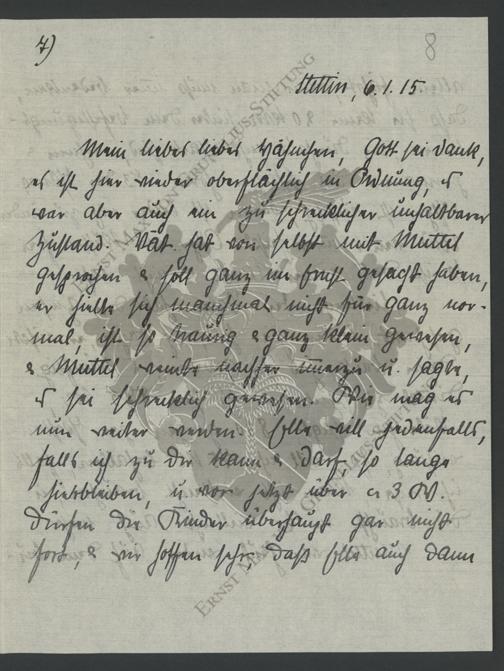 7)
8
Stettin, 6.1.15
Mein liebes liebes Hähnchen, Gott sei dank,
es ist hier wieder oberflächlich in Ordnung, es
war aber auch ein zu schrecklicher unhaltbarer
Zustand. Vat. hat von selbst mit Muttel
gesprochen & soll ganz im Ernst gesagt haben,
er hielte sich manchmal nicht für ganz nor-
mal, ist so traurig & ganz klein gewesen,
& Muttel weinte nachher immerzu u. sagte,
es sei schrecklich gewesen. Wie mag es
nun weiter werden. Elle will jedenfalls,
falls ich zu Dir kann & darf, so lange
hierbleiben, u. vor jetzt über 3 W.
dürfen die Kinder überhaupt gar nicht
fort, & wir hoffen sehr, daß Elle auch dann
ERNST MAGNUS STIFTUNG